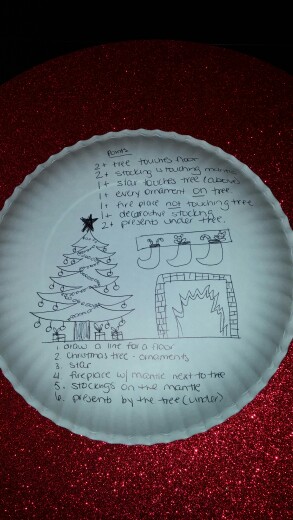 Points
2+ tree touches floor
2+ stocking is touching mantle
1+ star touches tree (above)
1+ every ornament on tree
1+ fire place not touching tree
1+ decorative stocking
2+ presents under tree.
1. draw a line for a floor
2. Christmas tree - ornaments
3. star
4. fireplace w/ mantle next to tree
5. stockings on the mantle
6. presents by the tree (under)